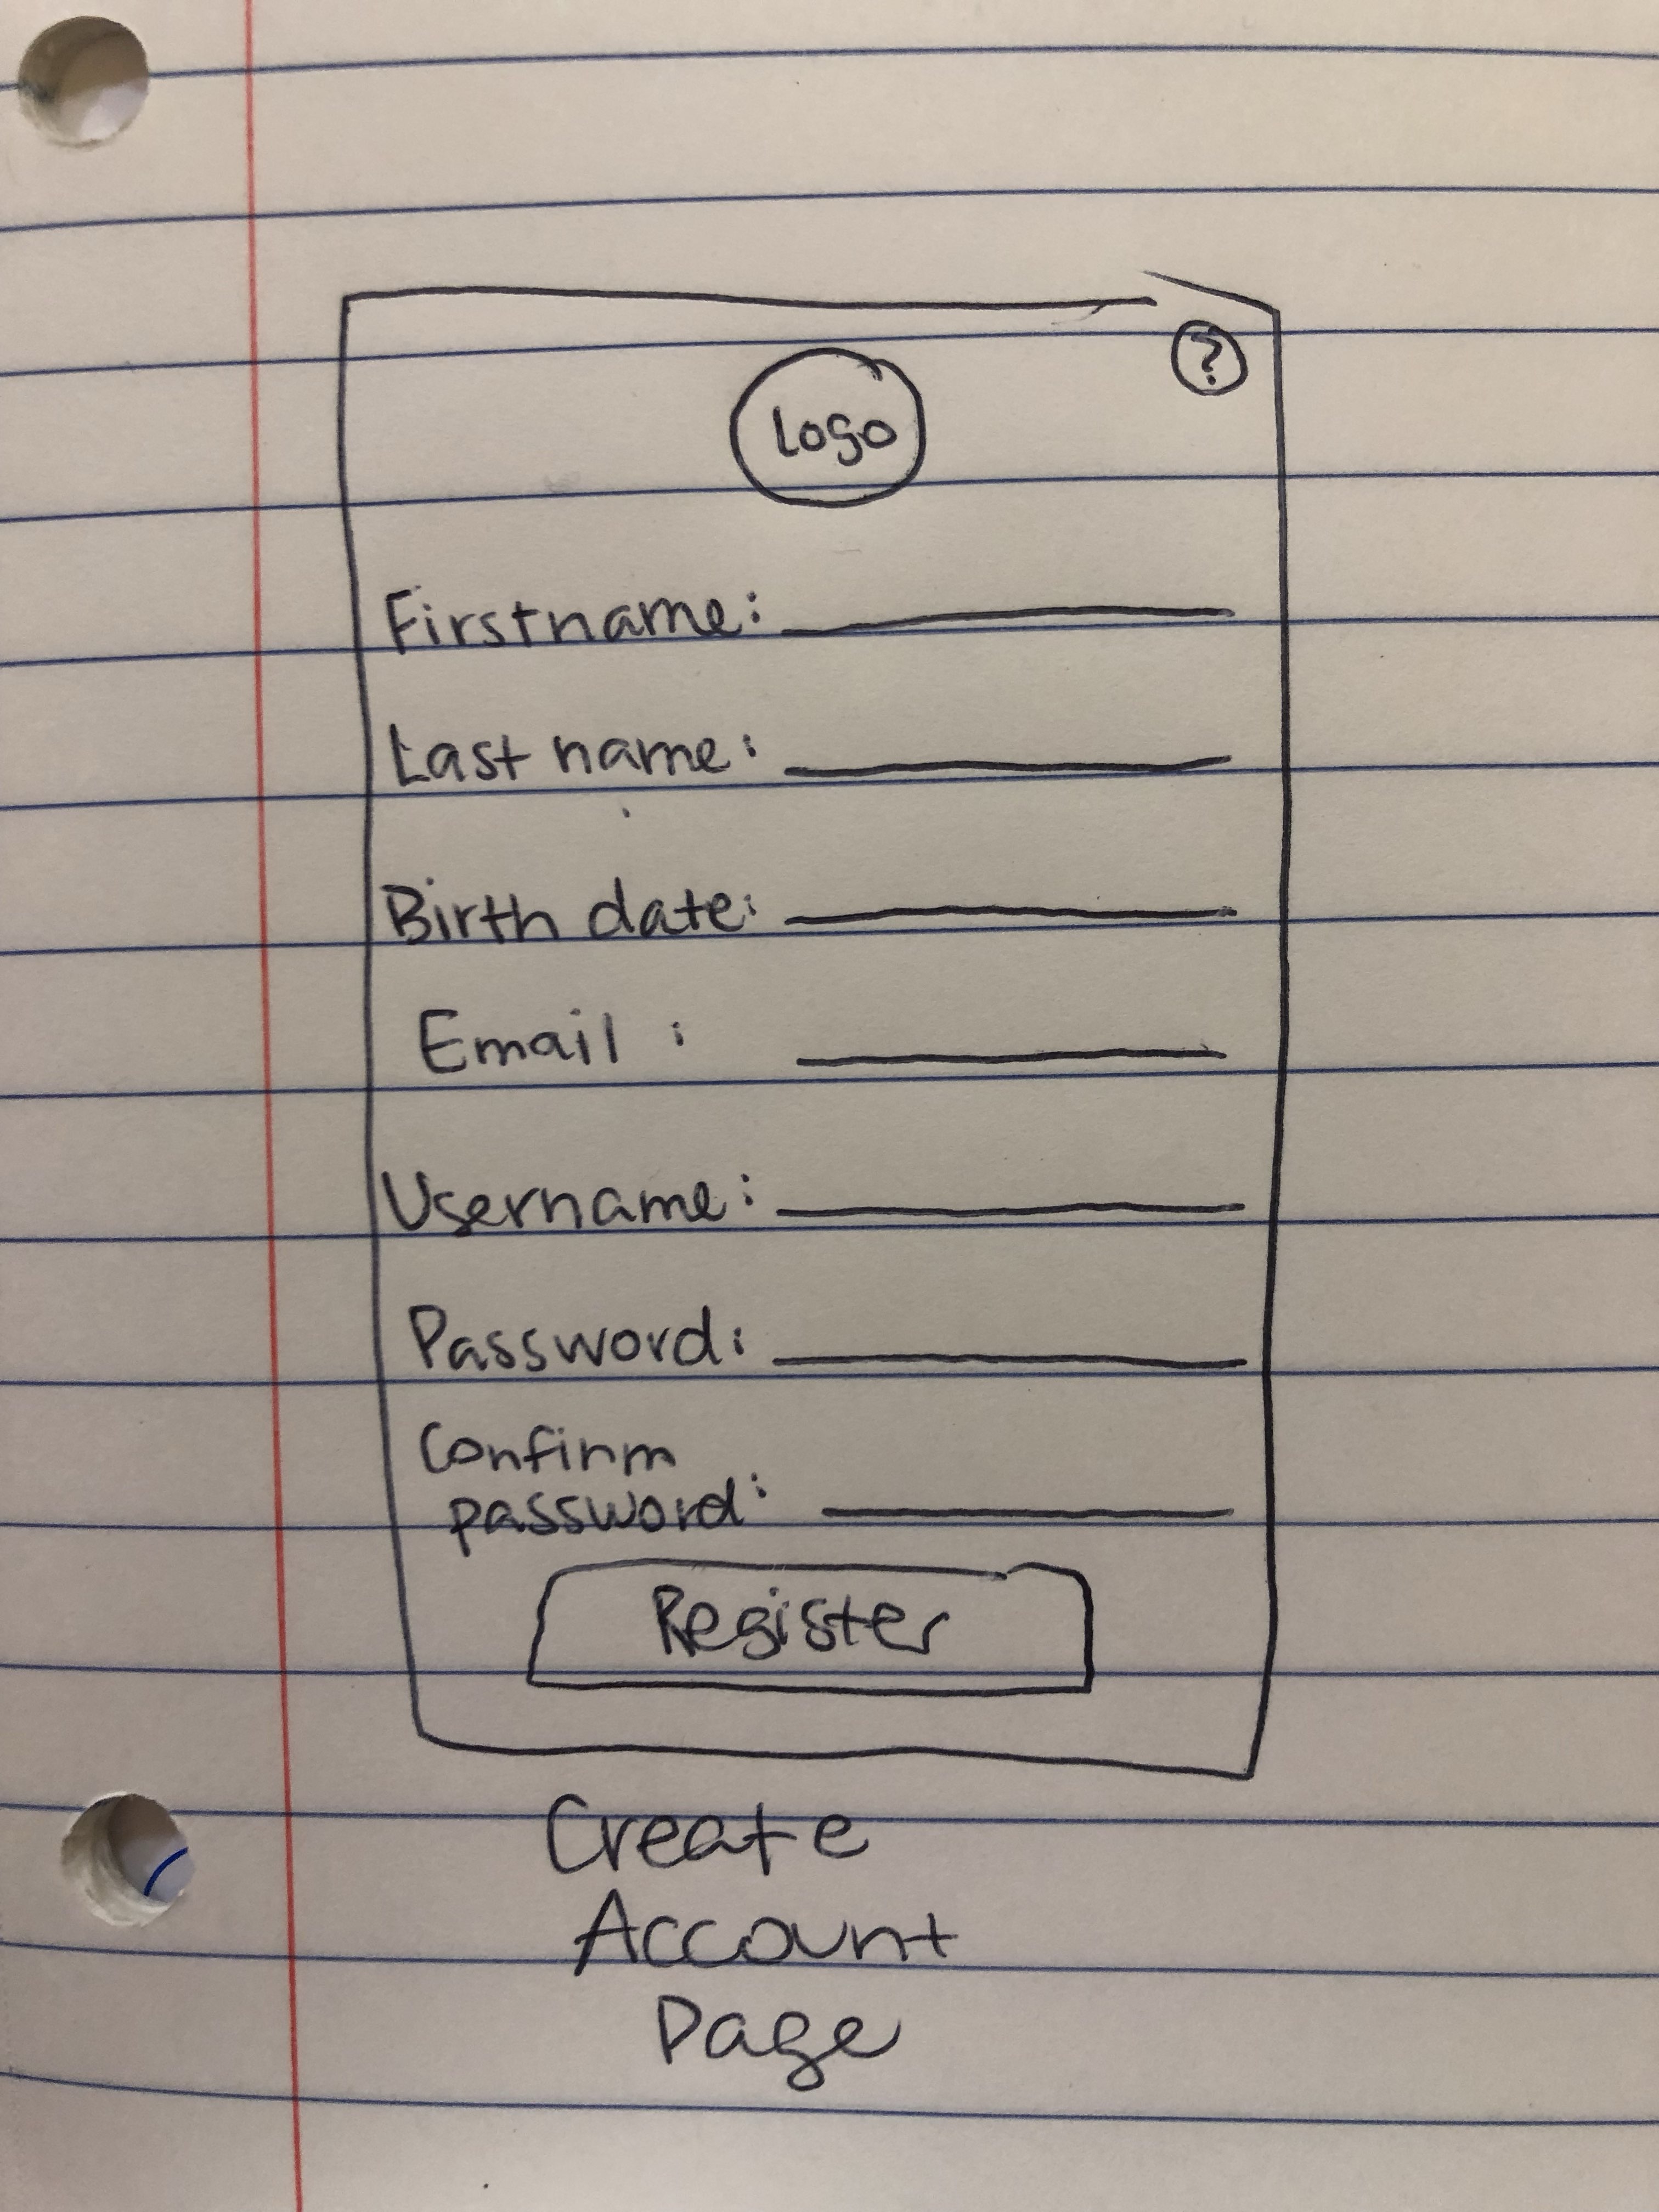 ?
Logo
Firstname:
Last name:
Birth date:
Email :
Username:
Password:
Confirm
password:
Register
Create
Account
Page